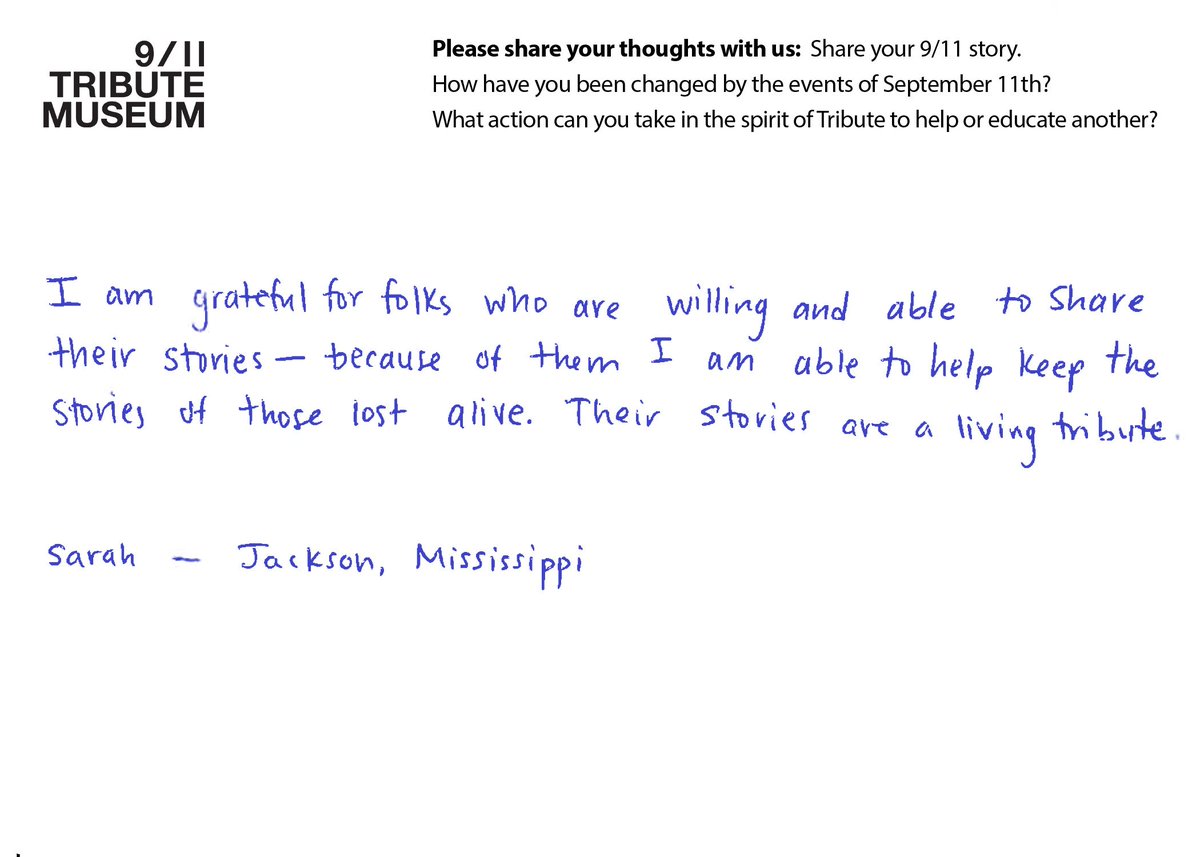 9/11
TRIBUTE
MUSEUM
Please share your thoughts with us: Share your 9/11 story.
How have you been changed by the events of September 11th?
What action can you take in the spirit of Tribute to help or educate another?
I am grateful for folks who are willing and able to share
their stories — because of them I am able to help keep the
stories of those lost alive. Their stories are a living tribute.
Sarah — Jackson, Mississippi